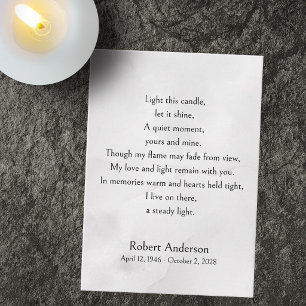 Light this candle,
let it shine,
A quiet moment,
yours and mine.
Though my flame may fade from view,
My love and light remain with you.
In memories warm and hearts held tight,
I live on there,
a steady light.
Robert Anderson
April 12, 1946 - October 2, 2028